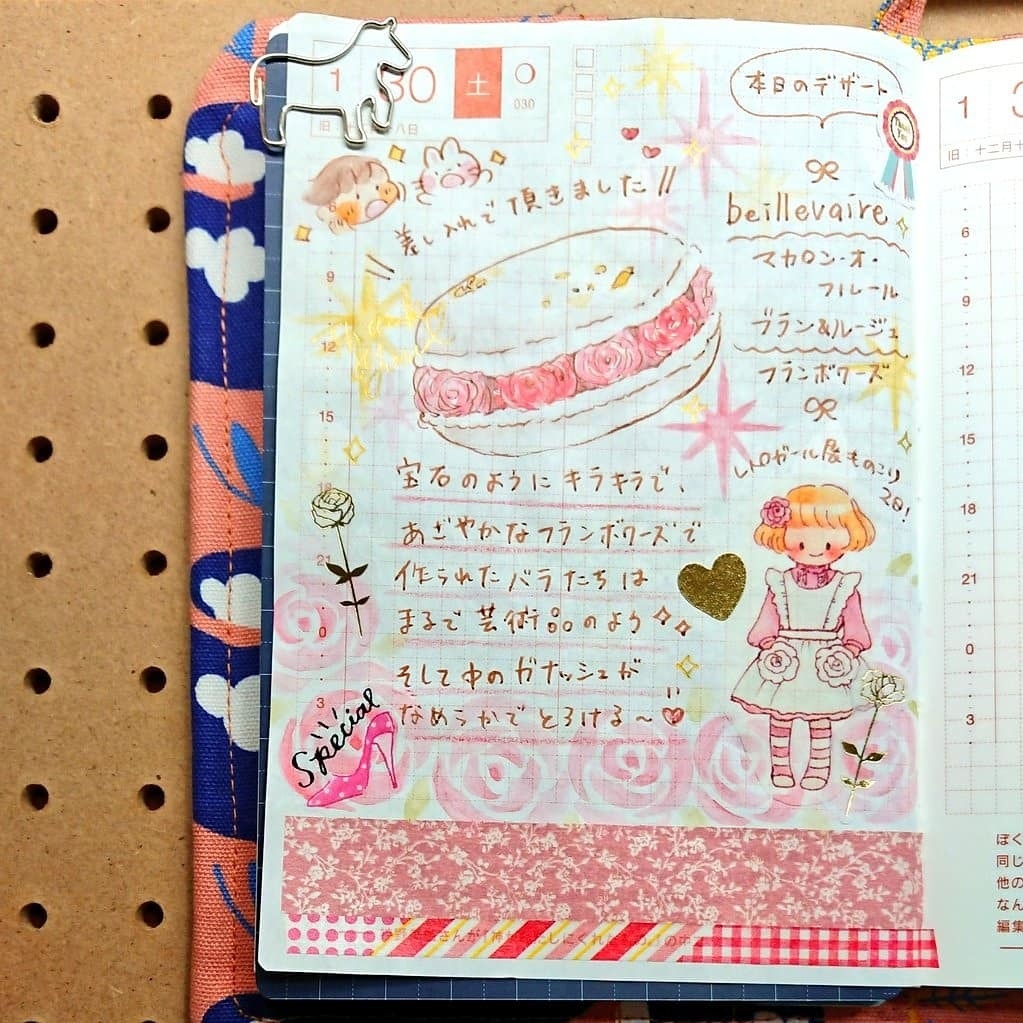 1 30 土
030
八日
本日のデザート
差し入れで頂きました!!
beillevaire
マカロン・オ・
フルール
ブラン&ルージュ
フランボワーズ
6
9
12
15
21
0
3
宝石のようにキラキラで、
あざやかなフランボワーズで
作られたバラたちは
まるで芸術品のよう
そして中のガナッシュが
なめらかでとろける〜
レトロガール展ものこり
2日!
Special
1
旧:十二月十
6
9
12
15
18
21
0
3
ぼく
同じ
他の
なん
編集